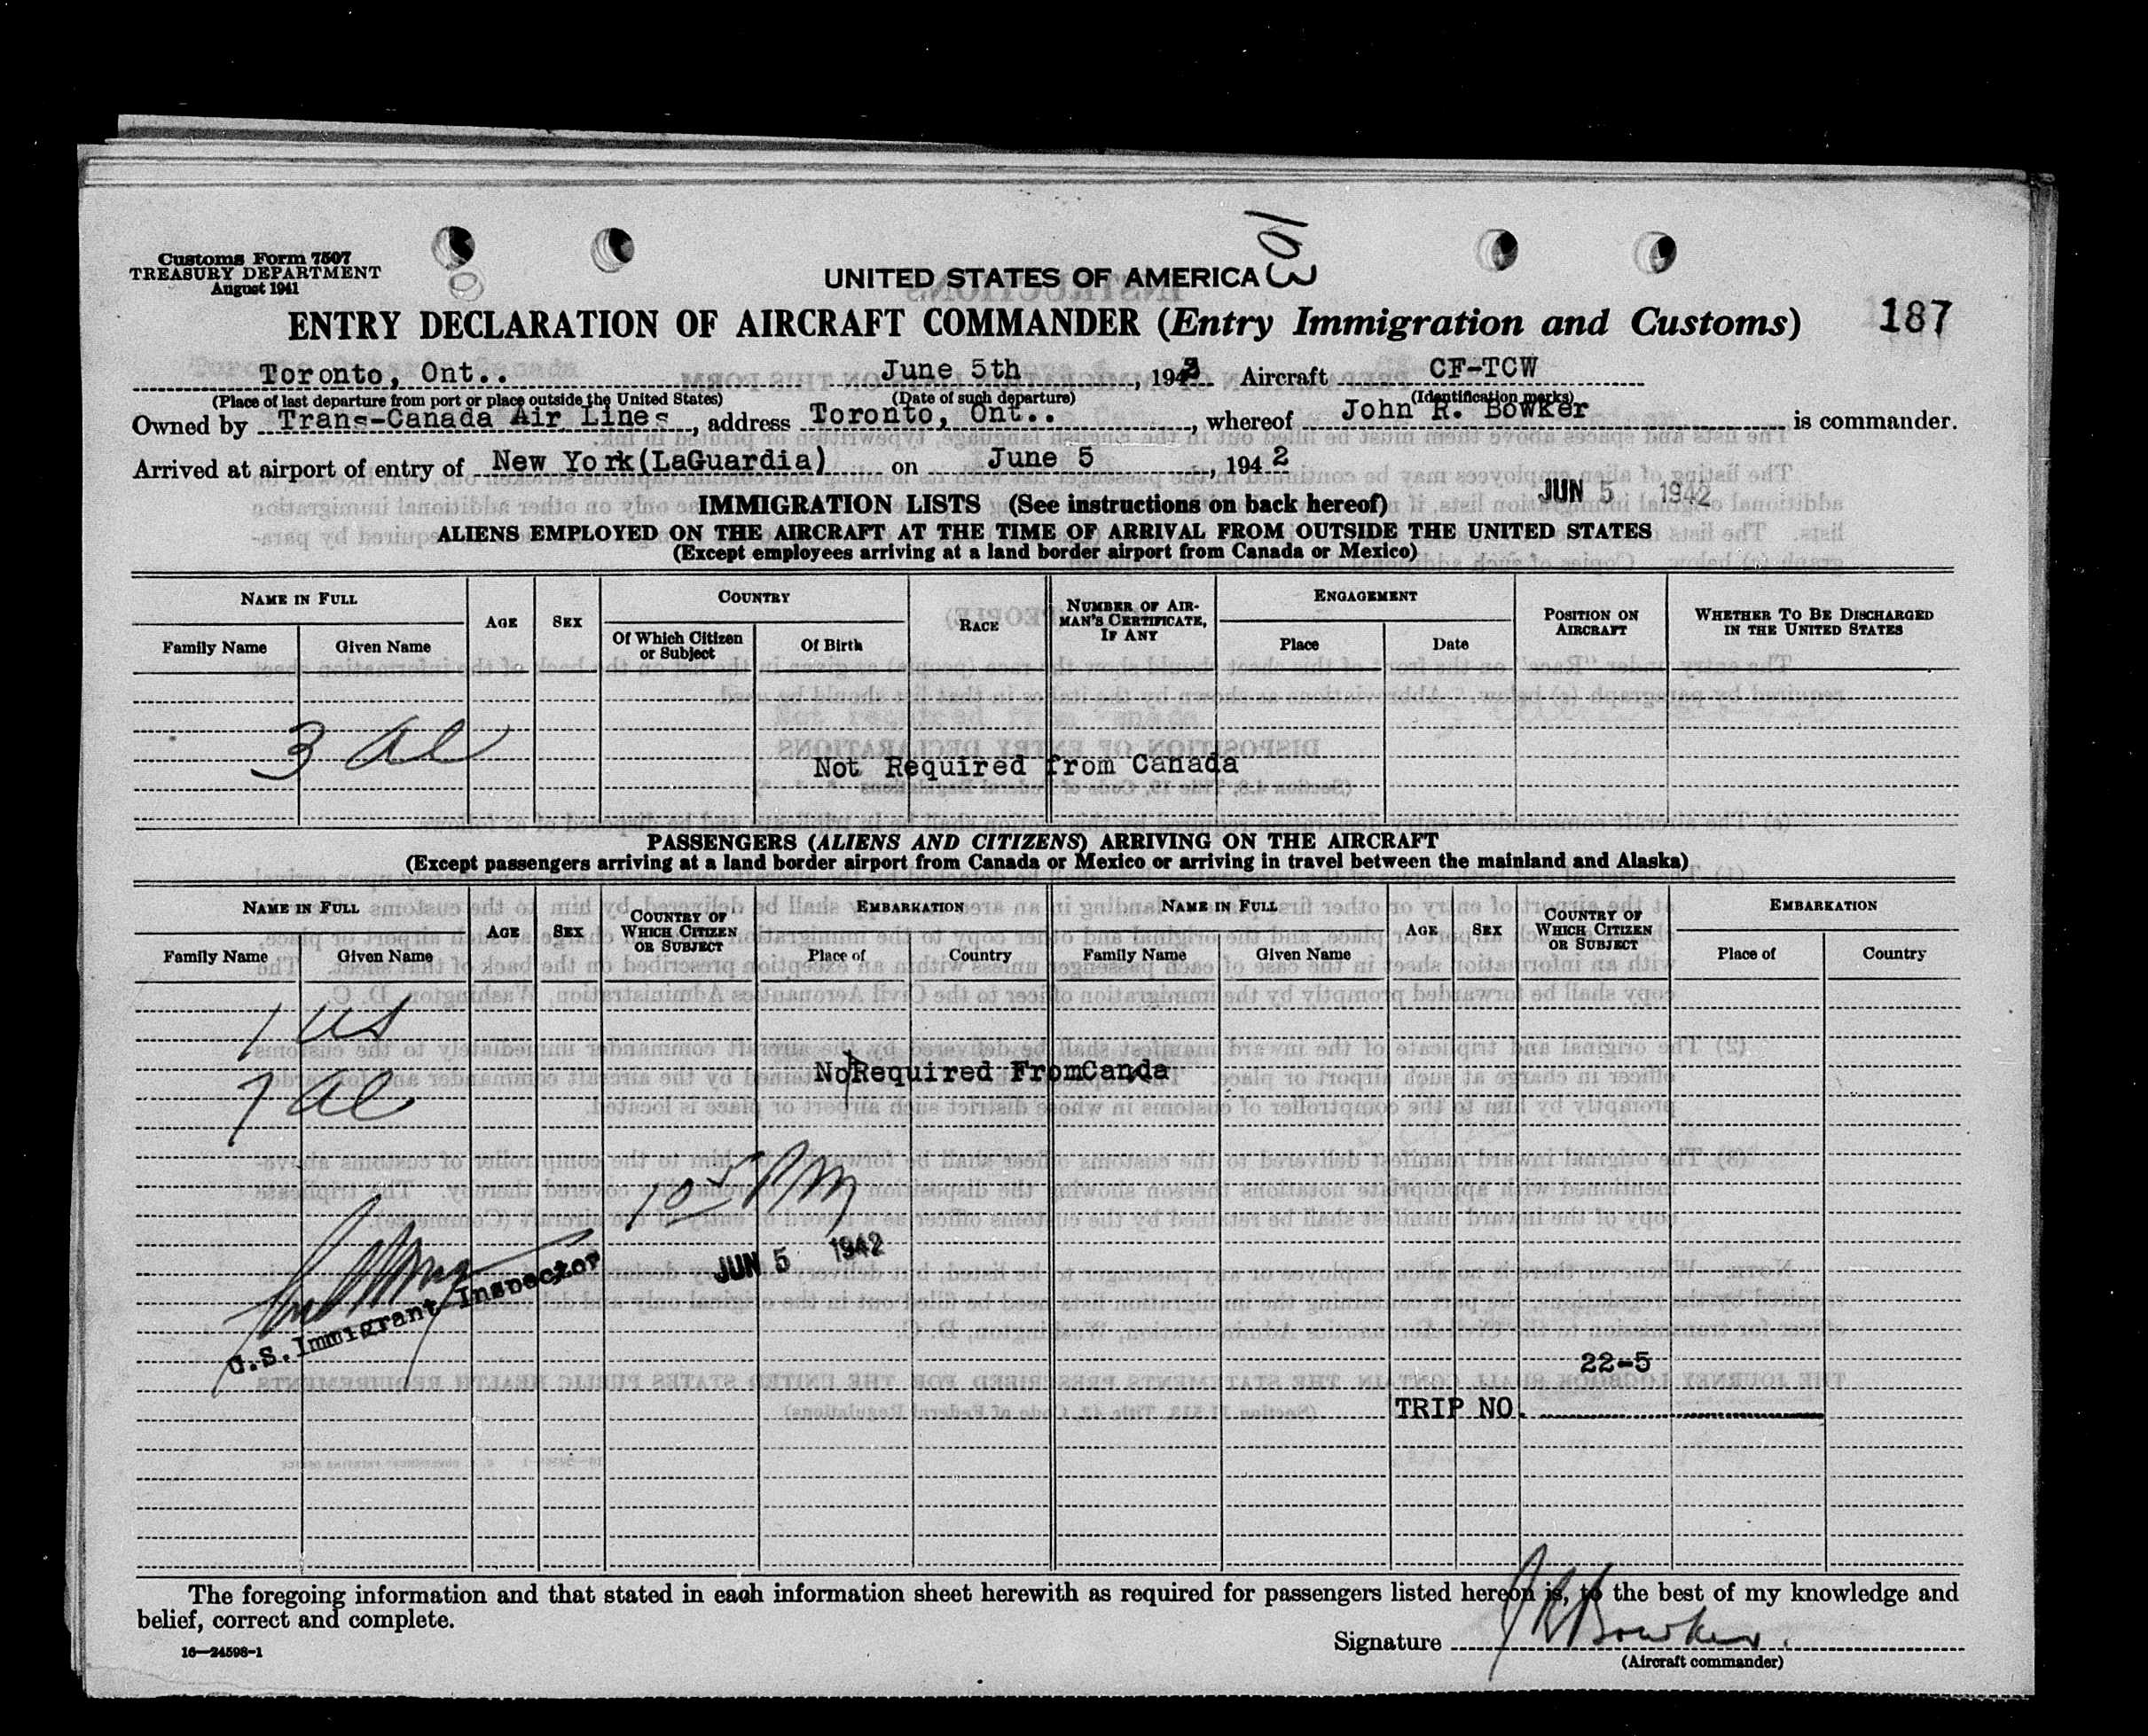 Customs Form 7507
TREASURY DEPARTMENT
August 1941
UNITED STATES OF AMERICA
ENTRY DECLARATION OF AIRCRAFT COMMANDER (Entry Immigration and Customs)
187
Toronto, Ont.. June 5th, 1942 Aircraft CF-TCW
(Place of last departure from port or place outside the United States) (Date of such departure) (Identification marks)
Owned by Trans-Canada Air Lines, address Toronto, Ont.., whereof John R. Bowker is commander.
Arrived at airport of entry of New York(LaGuardia) on June 5, 1942
JUN 5 1942
IMMIGRATION LISTS (See instructions on back hereof)
ALIENS EMPLOYED ON THE AIRCRAFT AT THE TIME OF ARRIVAL FROM OUTSIDE THE UNITED STATES
(Except employees arriving at a land border airport from Canada or Mexico)
NAME IN FULL
Family Name
Given Name
AGE
SEX
COUNTRY
Of Which Citizen
or Subject
Of Birth
RACE
NUMBER OF AIR-
MAN'S CERTIFICATE,
IF ANY
ENGAGEMENT
Place
Date
POSITION ON
AIRCRAFT
WHETHER TO BE DISCHARGED
IN THE UNITED STATES
3 al
Not Required from Canada
PASSENGERS (ALIENS AND CITIZENS) ARRIVING ON THE AIRCRAFT
(Except passengers arriving at a land border airport from Canada or Mexico or arriving in travel between the mainland and Alaska)
NAME IN FULL
Family Name
Given Name
AGE
SEX
COUNTRY OF
WHICH CITIZEN
OR SUBJECT
EMBARKATION
Place of
Country
NAME IN FULL
Family Name
Given Name
AGE
SEX
COUNTRY OF
WHICH CITIZEN
OR SUBJECT
EMBARKATION
Place of
Country
1 us
7 al
NotRequired FromCanda
JUN 5 1942
U.S. Immigrant Inspector
22-5
TRIP NO.
The foregoing information and that stated in each information sheet herewith as required for passengers listed hereon is, to the best of my knowledge and
belief, correct and complete.
16—24598-1
Signature J R Bowker.
(Aircraft commander)